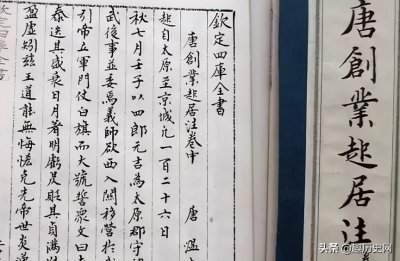 唐創業起居注
欽定四庫全書
唐創業起居注卷中
唐 温
起自太原至京城凡一百二十六日
秋七月壬子以四郎元吉為太原郡守
武後事並委焉義師欲西入關移營於
引帝立軍門仗白旗而大號誓衆文曰
泰迭其盛衰日月著明虧昃貶其貞滿
盈虛矧兹王道能無悔恡克先帝世炎
頭条 @趣历史网